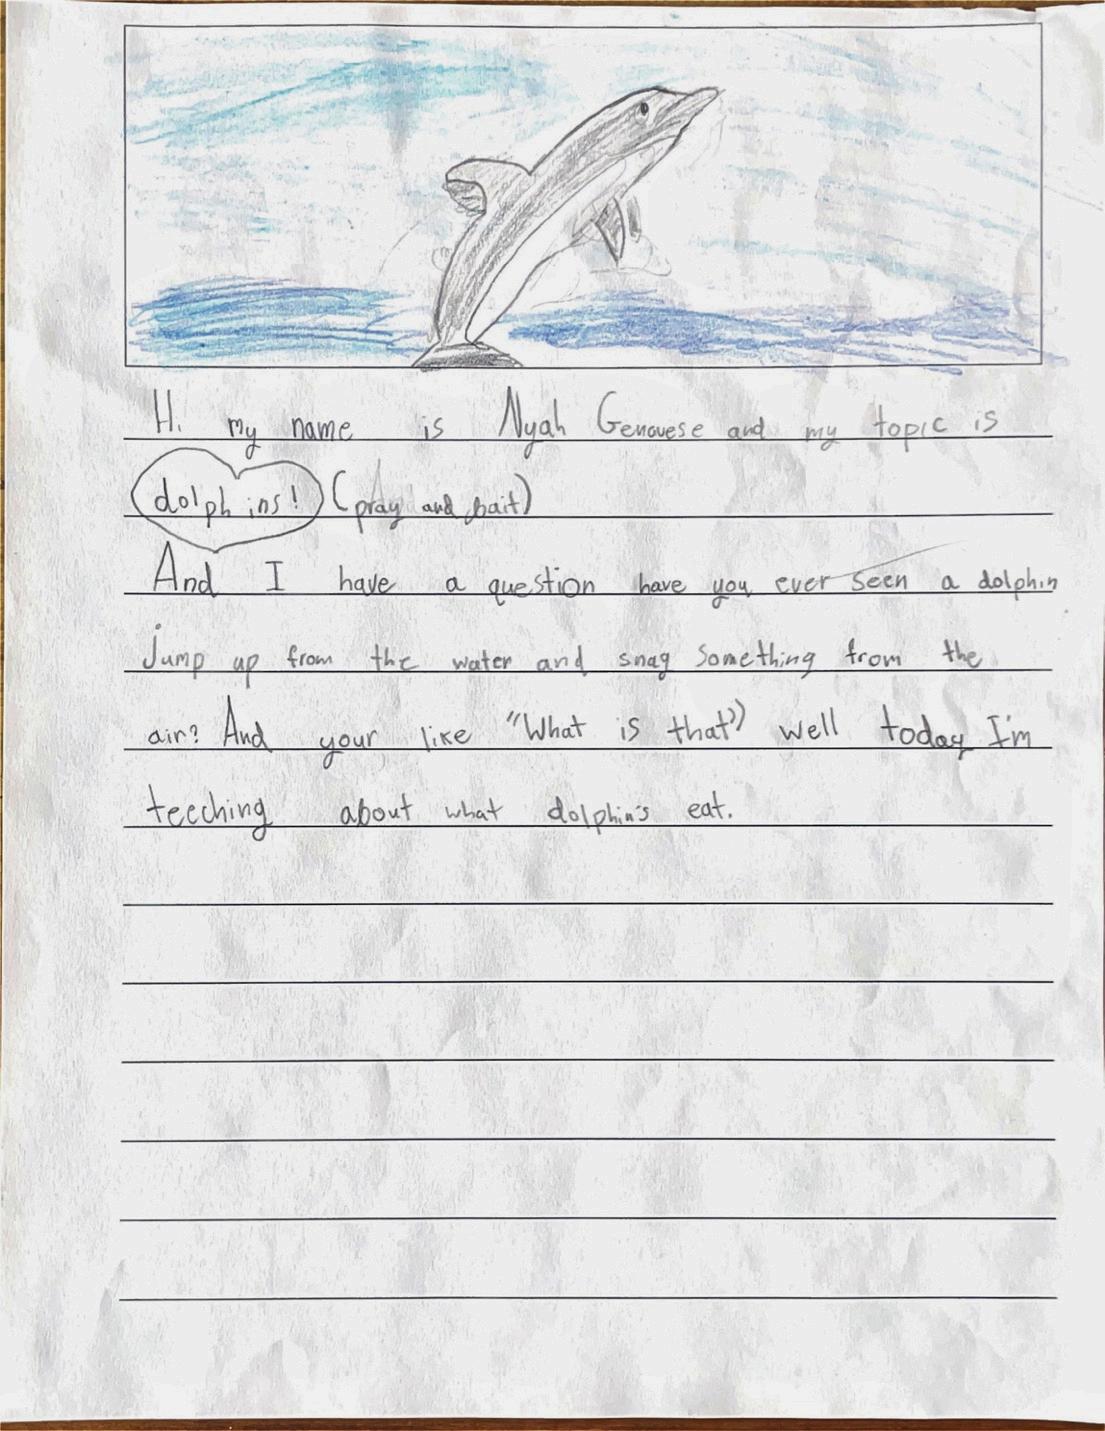 Hi my name is Nyah Genovese and my topic is
dolphins! (pray and bait)
And I have a question have you ever seen a dolphin
jump up from the water and snag something from the
air? And your like "What is that" well today I'm
teeching about what dolphin's eat.